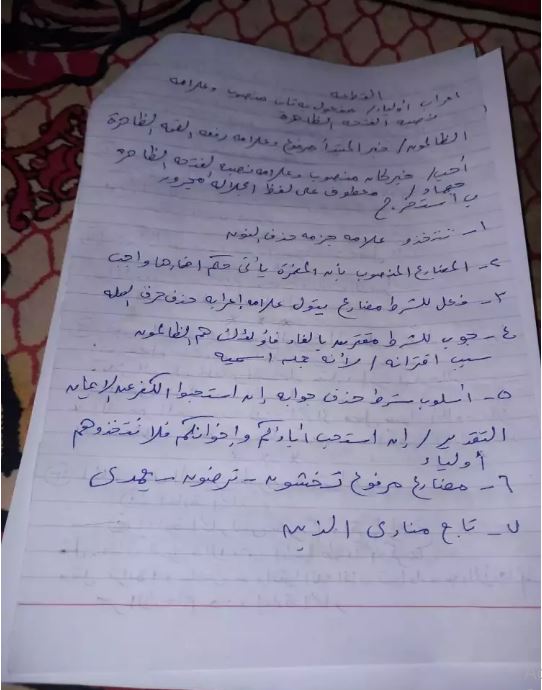 القطعه
اعراب أولياء/ مفعول به ثاني منصوب وعلامه
نصبه الفتحه الظاهرة
الظالمون/ خبر المبتدأ مرفوع وعلامه رفعه الظاهرة
أحب/ خبر كان منصوب وعلامه نصبه الفتحه الظاهرة
جهاد/ معطوف على لفظ الجلاله مجرور
ب استخرج
١- تتخذو علامه جزمه حذف النون
٢- المضارع المنصوب بأن المضمرة يأتى حكم اضمارها واجب
٣- فعل للشرط مضارع يتول علامه إعرابه حذف حرف العله
٤- جوب للشرط مقترن بالفاء فأولئك هم الظالمون
سبب اقترانه / لأنه جمله اسميه
٥- أسلوب شرط حذف جوابه إن استحبوا الكفر على الايمان
التقدير / إن استحب أباؤكم وإخوانكم فلا تتخذوهم
أولياء
٦- مضارع مرفوع تخشون - ترضون - يهدى
٧- تابع منادى الذين